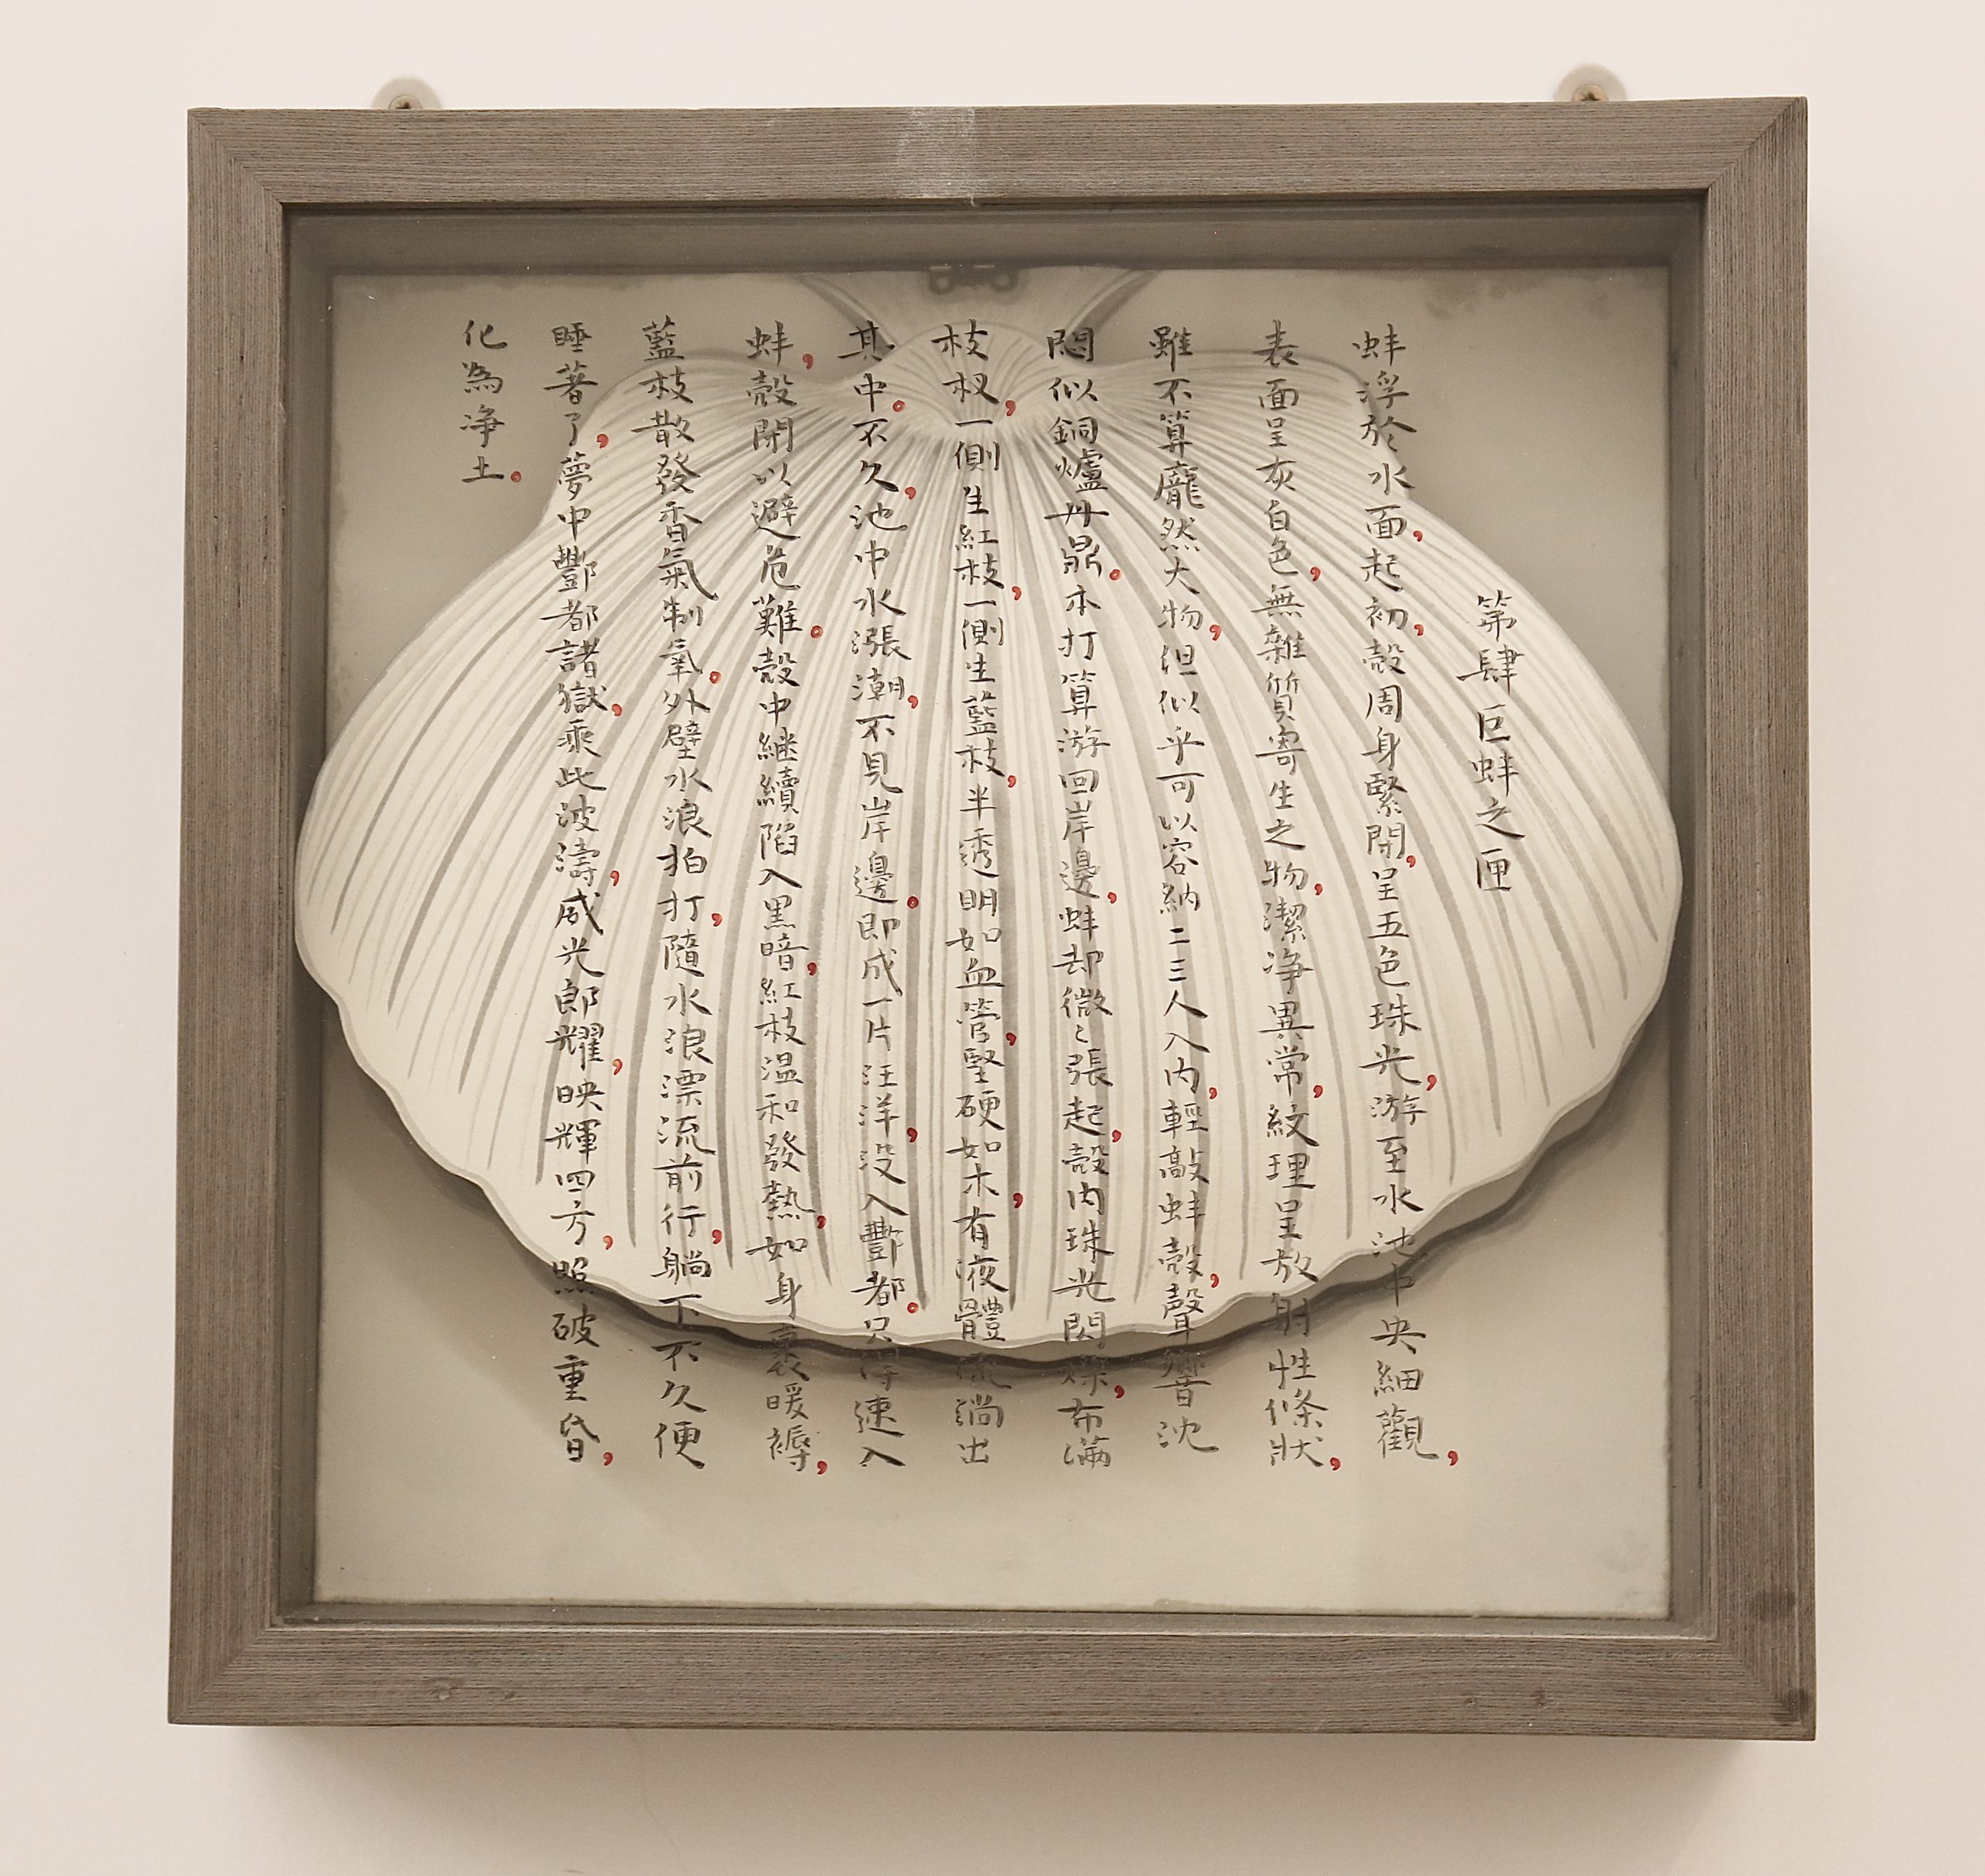 第肆 巨蚌之匣
蚌浮於水面，起初，殼周身緊閉，呈五色珠光，游至水池中央細觀，
表面呈灰白色，無雜質寄生之物，潔净異常，紋理呈放射性條狀，
雖不算龐然大物，但似乎可以容納二三人入内，輕敲蚌殼，聲響沈
悶似銅爐丹鼎。本打算游回岸邊，蚌却微々張起，殼内珠光閃爍，布滿
枝杈，一側生紅枝，一側生藍枝，半透明如血管，堅硬如木，有液體流淌出
其中。不久，池中水漲潮，不見岸邊。即成一片汪洋，没入酆都。只得速入
蚌，殼閉以避危難。殼中継續陷入黑暗，紅枝温和發熱，如身裹暖褥，
藍枝散發香氣制氧。外壁水浪拍打，隨水浪漂流前行，躺下不久便
睡著了，夢中酆都諸獄，乘此波濤，威光郎耀，映輝四方，照破重昏，
化為净土。